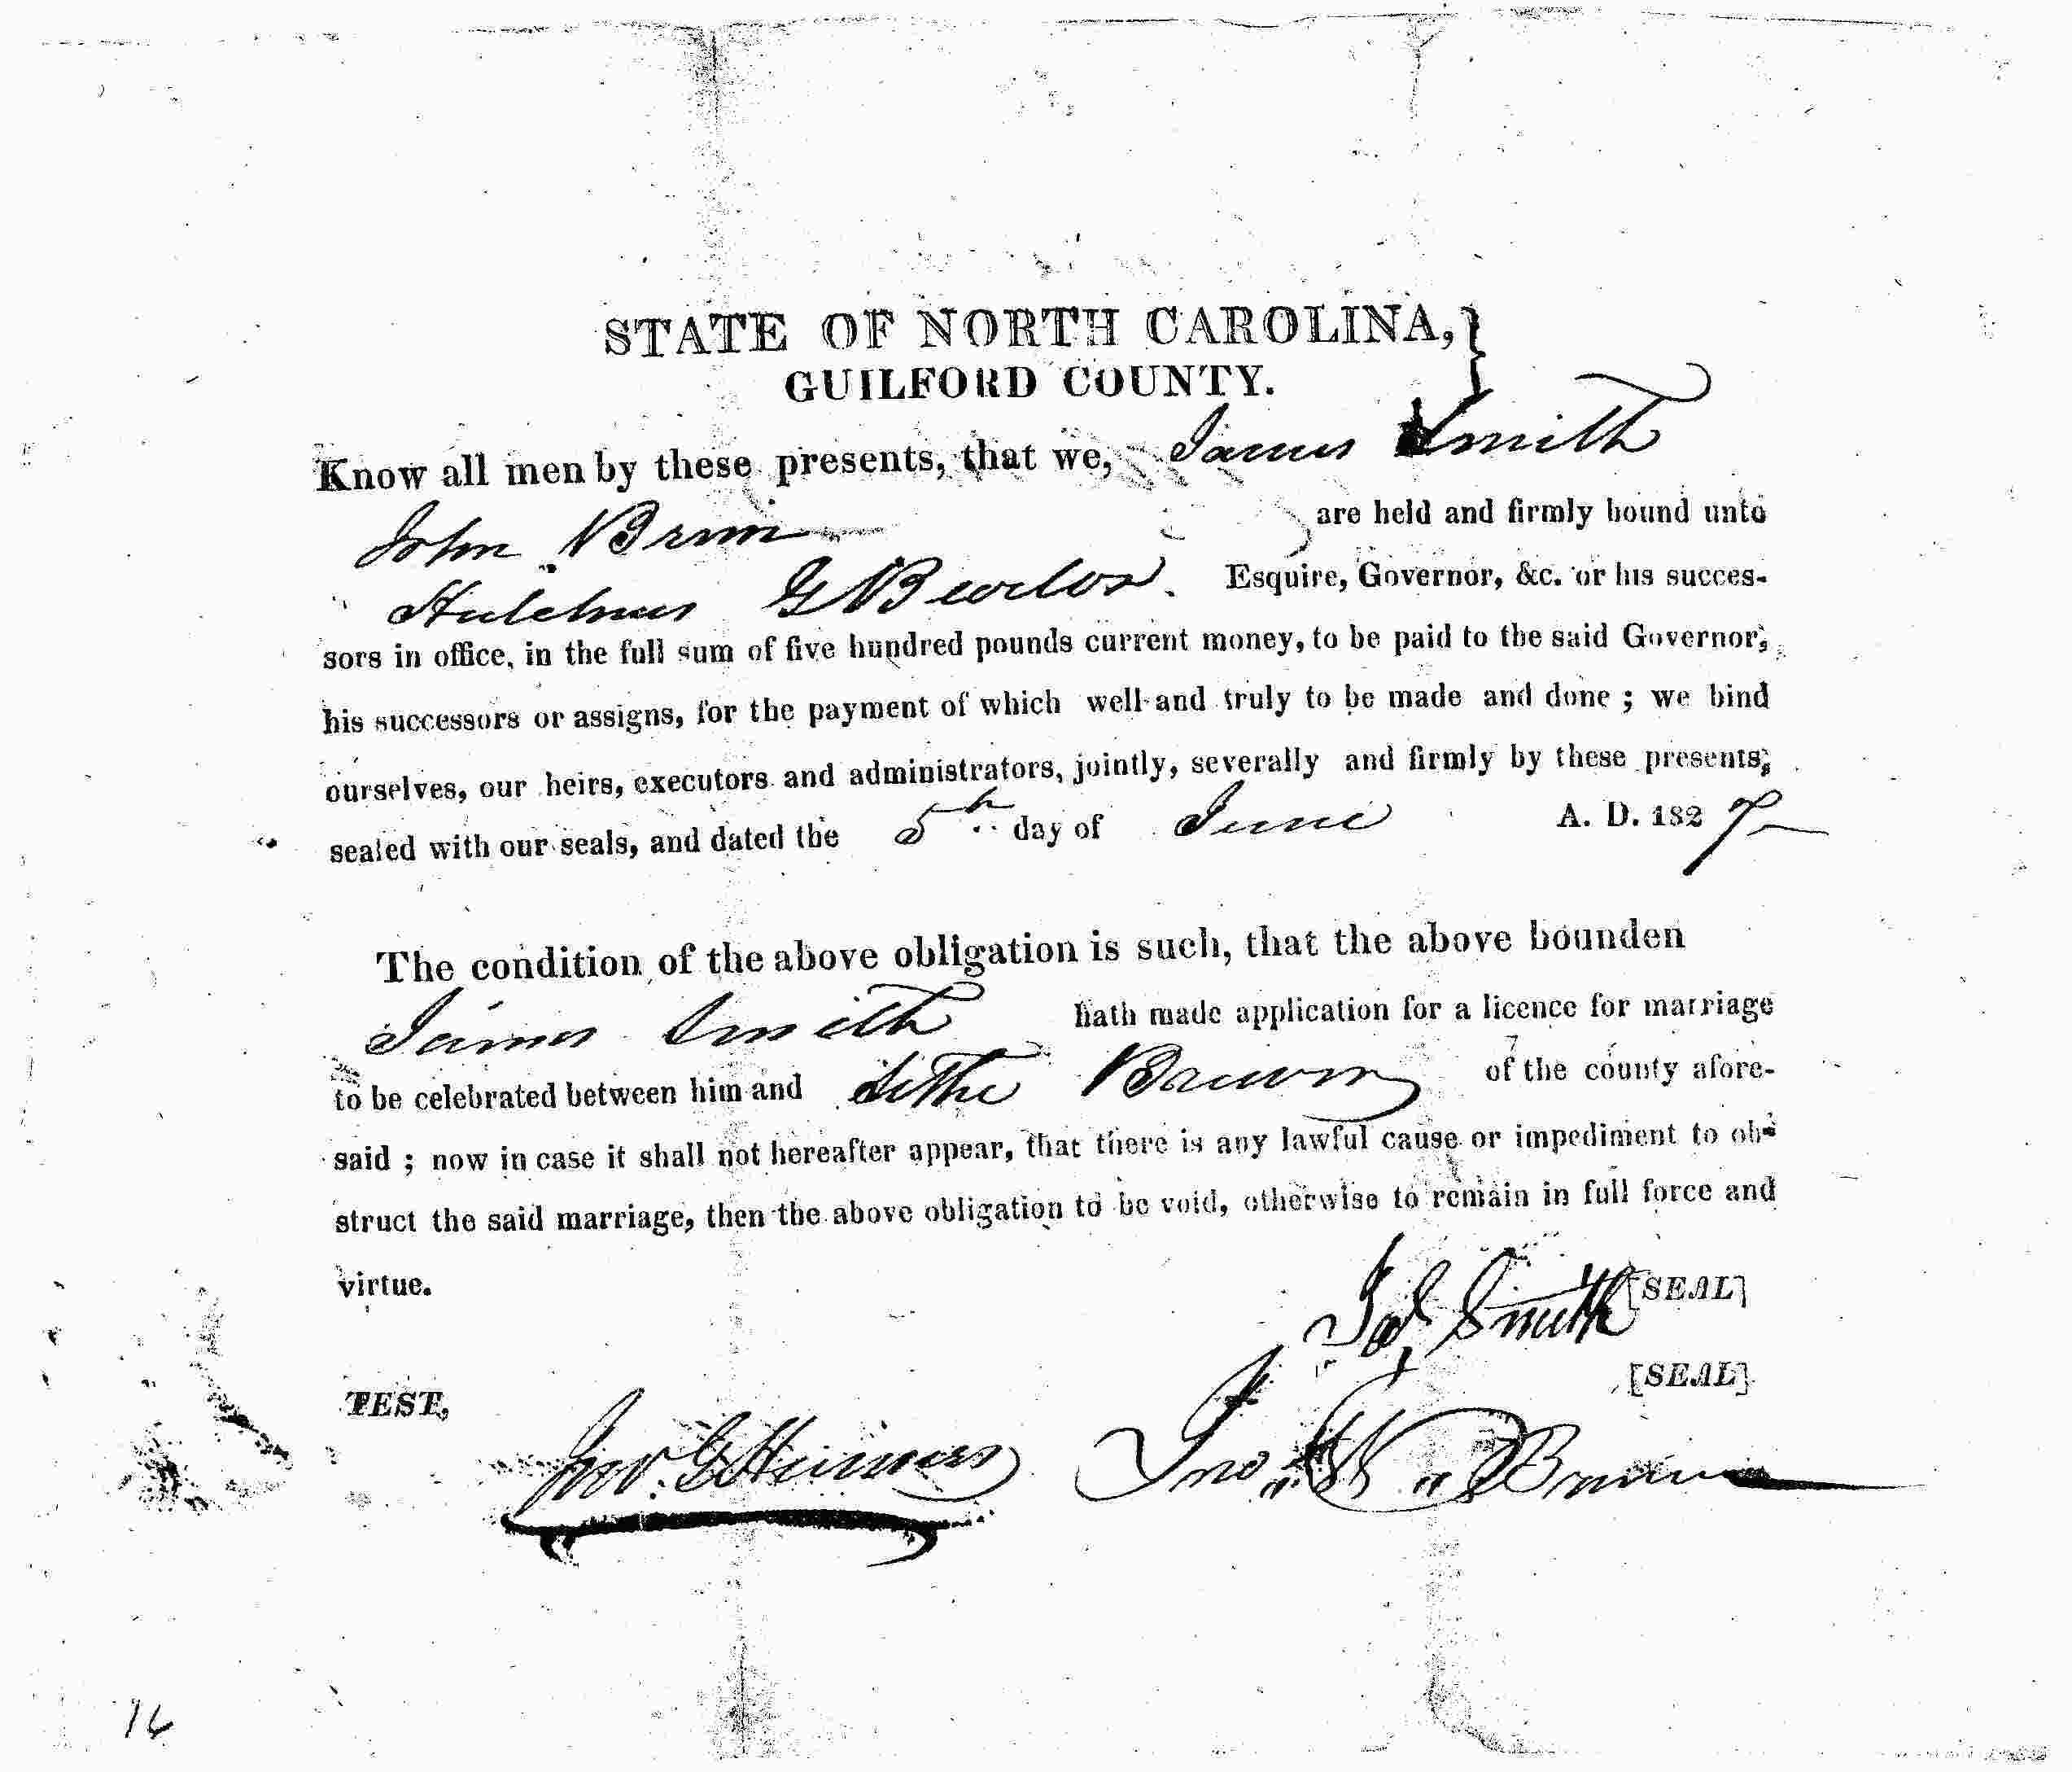 STATE OF NORTH CAROLINA,
GUILFORD COUNTY.
Know all men by these presents, that we, James Smith
John Brown are held and firmly bound unto
Hutchins G Burton. Esquire, Governor, &c. or his succes-
sors in office, in the full sum of five hundred pounds current money, to be paid to the said Governor,
his successors or assigns, for the payment of which well and truly to be made and done ; we bind
ourselves, our heirs, executors and administrators, jointly, severally and firmly by these presents,
sealed with our seals, and dated the 5th day of June A. D. 1827
The condition of the above obligation is such, that the above bounden
James Smith hath made application for a licence for marriage
to be celebrated between him and Brown of the county afore-
said ; now in case it shall not hereafter appear, that there is any lawful cause or impediment to ob-
struct the said marriage, then the above obligation to be void, otherwise to remain in full force and
virtue.
Jas Smith [SEAL]
[SEAL]
TEST,
Jno. Jno. Brown
16